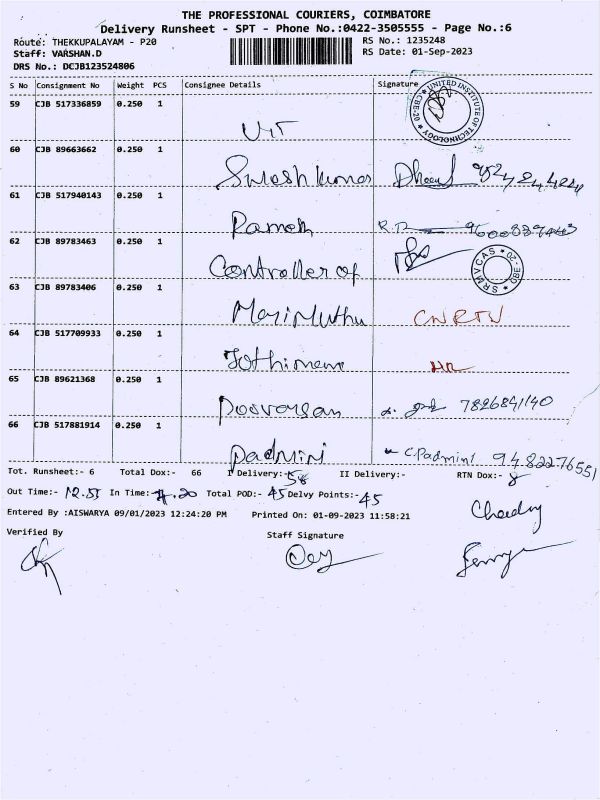 THE PROFESSIONAL COURIERS, COIMBATORE
Delivery Runsheet - SPT - Phone No.:0422-3505555 - Page No.:6
Route: THEKKUPALAYAM - P20 RS No.: 1235248
Staff: VARSHAN.D RS Date: 01-Sep-2023
DRS No.: DCJB123524806
S No Consignment No Weight PCS Consignee Details Signature
59 CJB 517336859 0.250 1
UNITED INSTITUTE OF TECHNOLOGY * CBE-20 *
60 CJB 89663662 0.250 1
61 CJB 517940143 0.250 1
Ramesh R.R
62 CJB 89783463 0.250 1
Controller of SRMVCAS * CBE - 20 *
63 CJB 89783406 0.250 1
Marimuthu
64 CJB 517709933 0.250 1
Jothimani
65 CJB 89621368 0.250 1
Poovarasan 7826841140
66 CJB 517881914 0.250 1
Padmini C.Padmini 9482276551
Tot. Runsheet:- 6 Total Dox:- 66 I Delivery:- 58 II Delivery:- RTN Dox:- 8
Out Time:- 12.55 In Time:- 4.20 Total POD:- 45 Delvy Points:- 45
Entered By :AISWARYA 09/01/2023 12:24:20 PM Printed On: 01-09-2023 11:58:21
Verified By Staff Signature